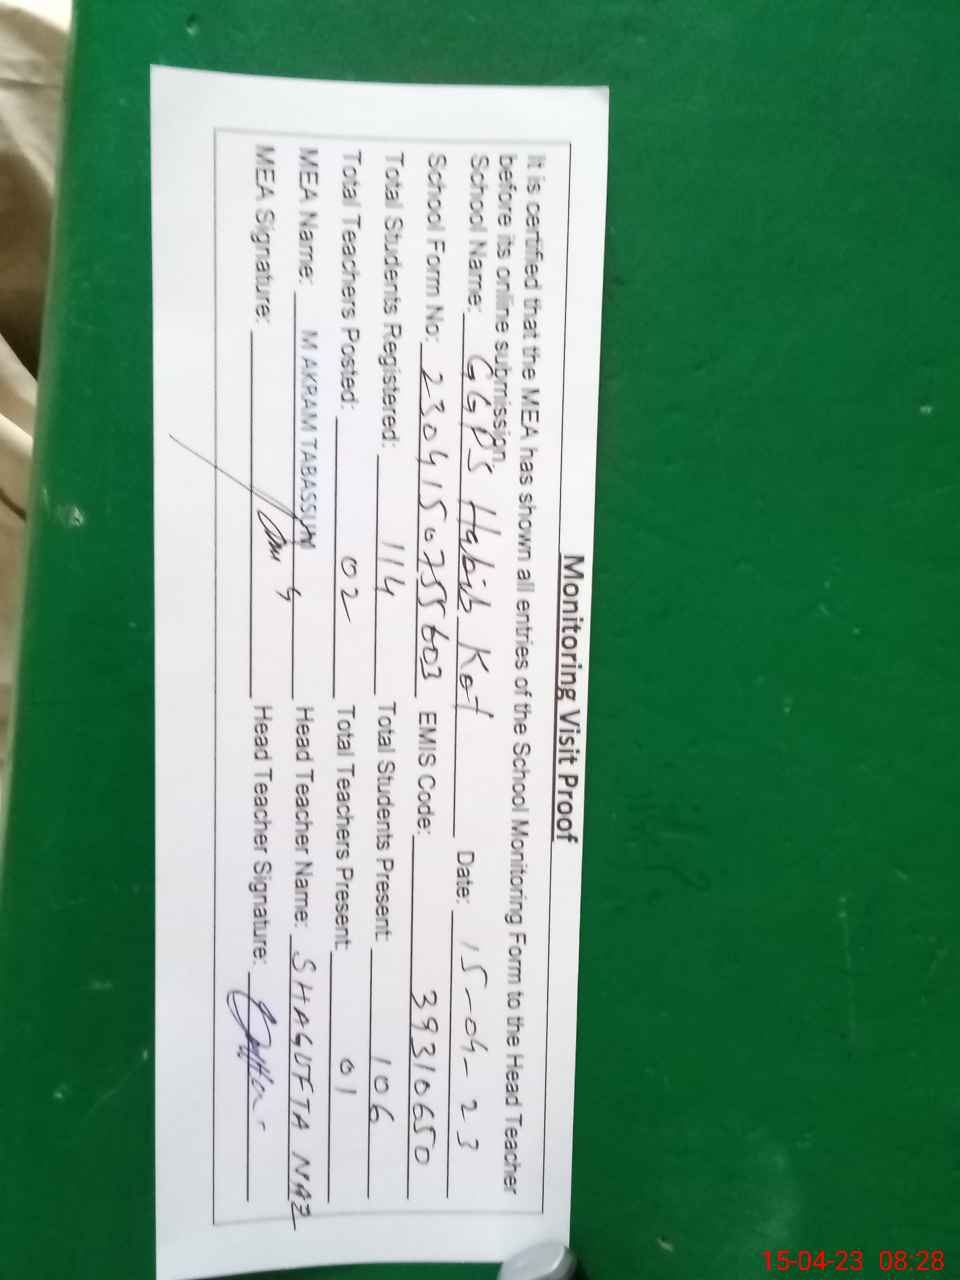 Monitoring Visit Proof
It is certified that the MEA has shown all entries of the School Monitoring Form to the Head Teacher
before its online submission.
School Name: GGPS Habib Kot Date: 15-04-23
School Form No: 2304150755603 EMIS Code: 39310650
Total Students Registered: 114 Total Students Present: 106
Total Teachers Posted: 02 Total Teachers Present: 01
MEA Name: M AKRAM TABASSUM Head Teacher Name: SHAGUFTA NAZ
MEA Signature: Head Teacher Signature:
15-04-23 08:28